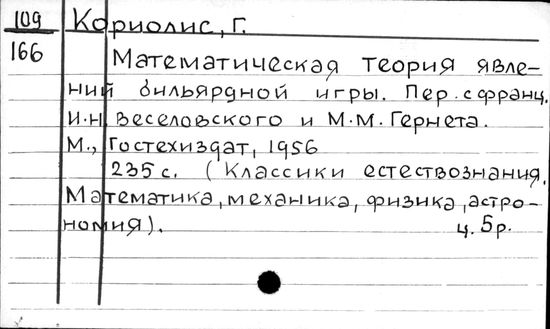 109 Кориолис, Г.
166 Математическая теория явле-
ний бильярдной игры. Пер. с франц.
И.Н. Веселовского и М.М. Гернета.
М., Гостехиздат, 1956
235 с. (Классики естествознания.
Математика, механика, физика, астро-
номия). ц. 5р.